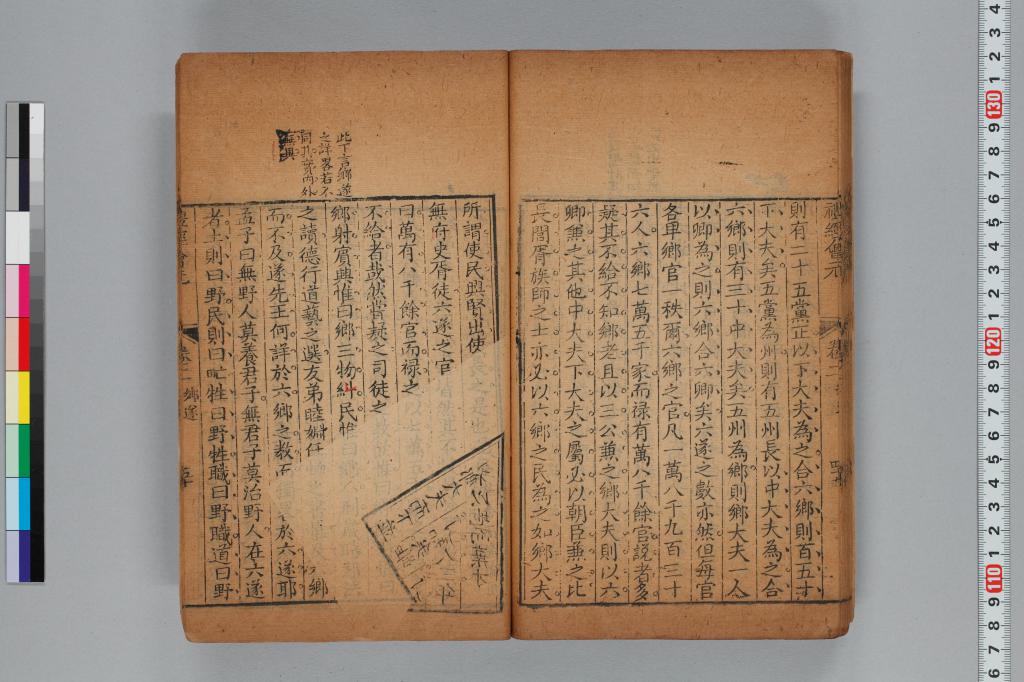 則有二十五黨正以下大夫為之合六鄉則百五十
下大夫矣五黨為州則有五州長以中大夫為之合
六鄉則有三十中大夫矣五州為鄉則鄉大夫一人
以卿為之則六鄉合六卿矣六遂之數亦然但每官
各卑鄉官一秩爾六鄉之官凡一萬八千九百三十
六人六鄉七萬五千家而祿有萬八千餘官說者多
疑其不給不知鄉老且以三公兼之鄉大夫則以六
卿兼之其他中大夫下大夫之屬必以朝臣兼之比
長閭胥族師之士亦必以六鄉之民為之如鄉大夫
此下言鄉遂
之詳畧若不
同攷究內外
所謂使民興賢出使
無府史胥徒六遂之官
曰萬有八千餘官而祿之
不給者哉然嘗疑之司徒之
鄉射賓興惟曰鄉三物糾民惟
之讀德行道藝之選友弟睦婣任
而不及遂先王何詳於六鄉之教而
於六遂耶
孟子曰無野人莫養君子無君子莫治野人在六遂
者土則曰野民則曰甿牲曰野牲職曰野職道曰野
卷二 鄉遂